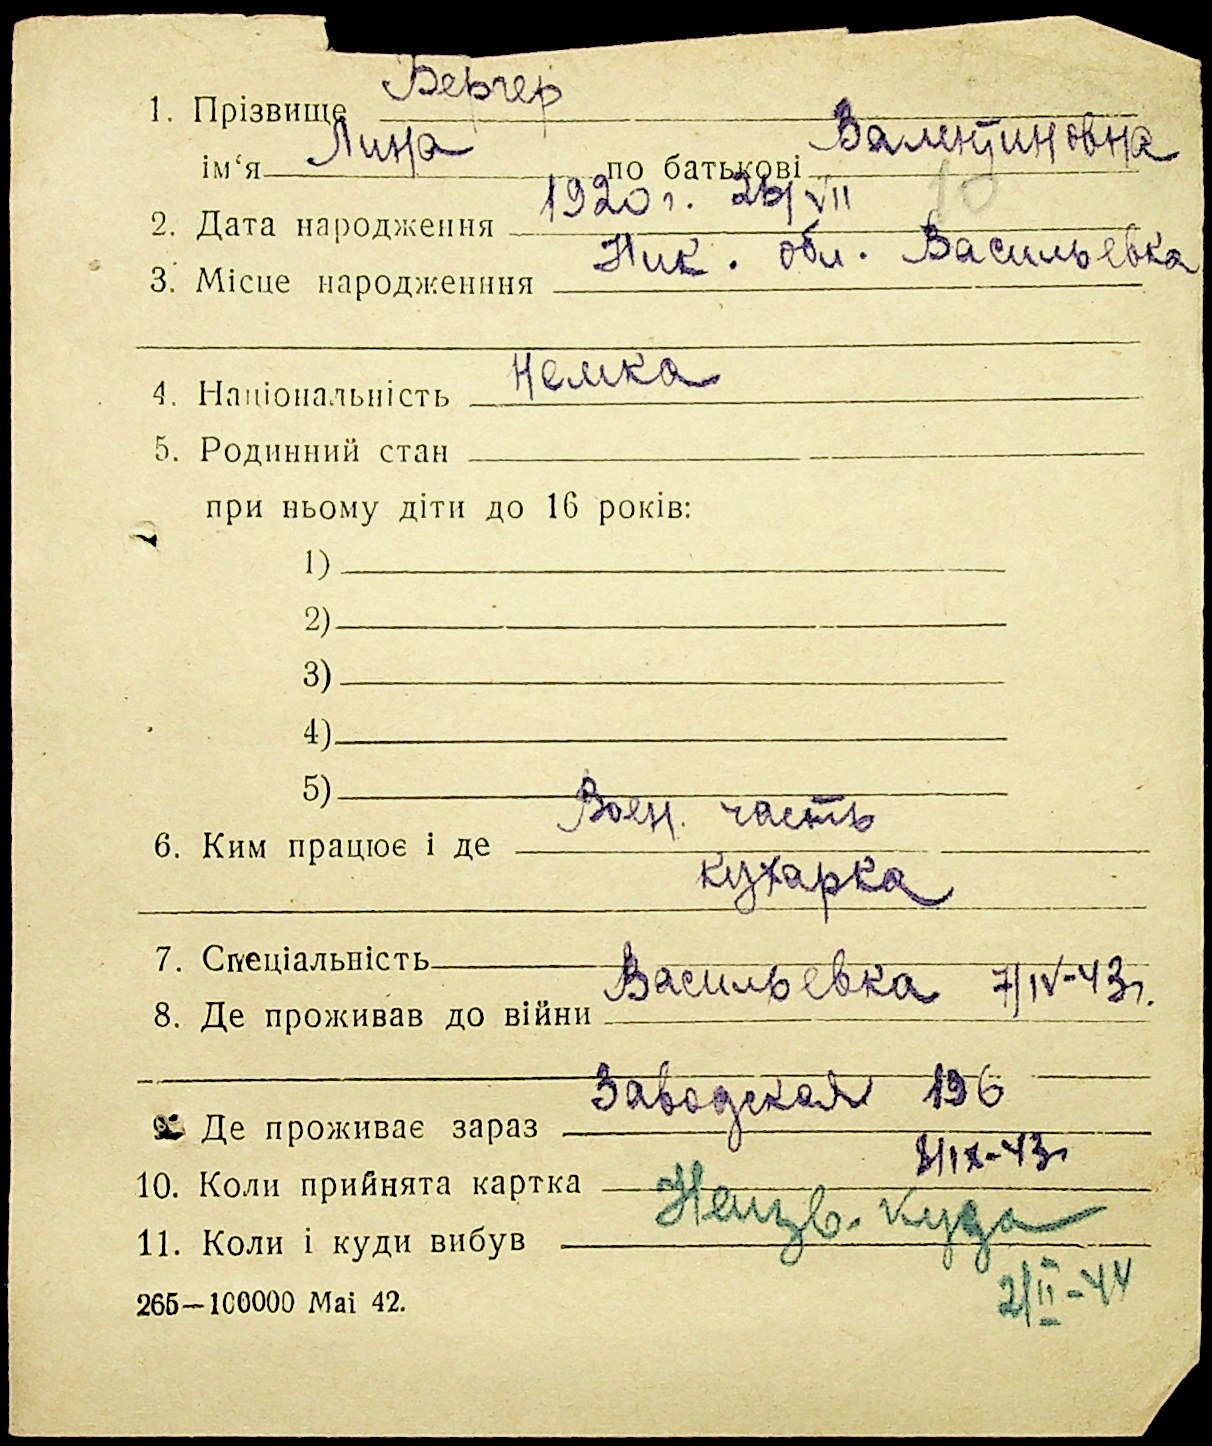 1. Прізвище Бергер
ім'я Лина по батькові Валентиновна
2. Дата народження 1920 г. /VII 10
3. Місце народженння Ник. обл. Васильевка
4. Національність Немка
5. Родинний стан
при ньому діти до 16 років:
1)
2)
3)
4)
5)
6. Ким працює і де Воен. часть
кухарка
7. Спеціальність
8. Де проживав до війни Васильевка 7/IV-43г.
9. Де проживає зараз Заводская 196
10. Коли прийнята картка 3/IX-43г
11. Коли і куди вибув Неизв. куда
2/II-44
265—100000 Mai 42.